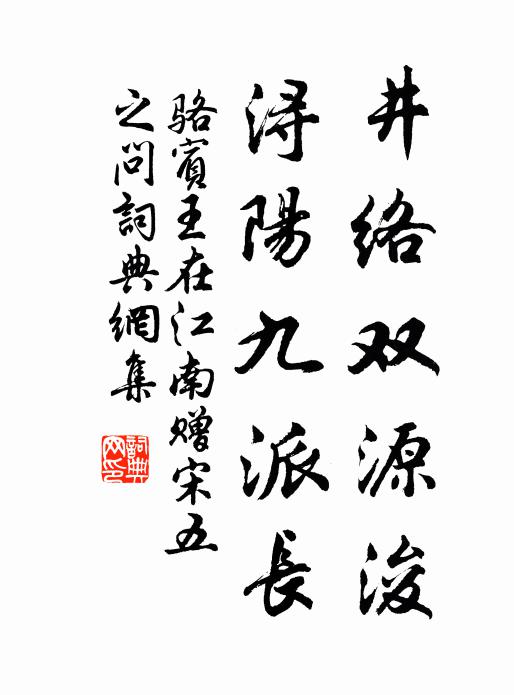 井络双源浚
浔陽九派長
骆賓王在江南赠宋五
之问詞典網集
詞典网印